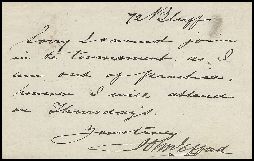 72 N Bluff
Sorry I cannot join
in to tournament as I
am out of practice,
I will attend
on Thursdays.
Yours truly